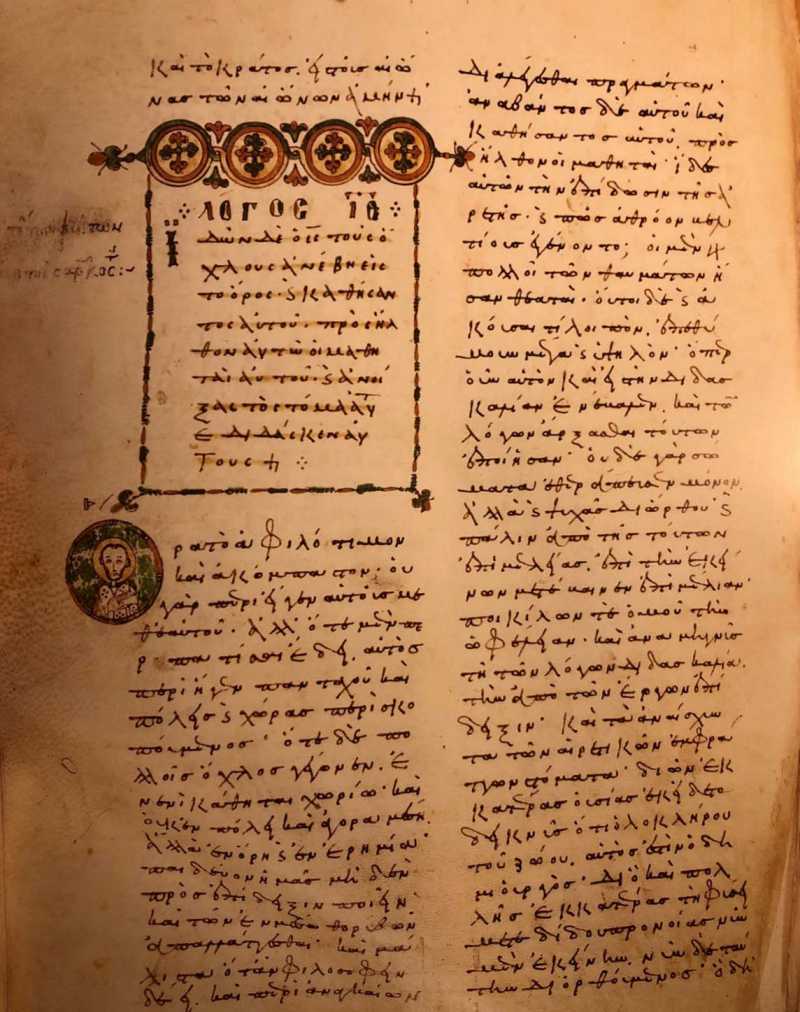 καὶ τὸ κράτος. εἰς τοὺς αἰῶ
νας τῶν αἰώνων ἀμήν
ΛΟΓΟΣ ΙΕ
Ἰδὼν δὲ ὁ ις τοὺς ὄ
χλους ἀνέβη εἰς
τὸ ὄρος· καὶ καθίσαν
τος αὐτοῦ. προσῆλ
θον αὐτῶ οἱ μαθη
ταὶ αὐτοῦ. καὶ ἀνοί
ξας τὸ στόμα αὐτοῦ
ἐδίδασκεν αὐ
τούς
Ὅρα τὸ ἀφιλότιμον
καὶ ἀκόμπαστον. οὐ
γὰρ περιῆγεν αὐτοὺς με
θεαυτοῦ· ἀλλ' ὅτε μὲν θε
ραπεῦσαι ἔδει, αὐτὸς
περιήει πανταχοῦ καὶ
πόλεις καὶ χώρας ἐπισκο
πούμενος· ὅτε δὲ πο
λὺς ὁ ὄχλος γέγονεν. ἐν
ἑνὶ κάθηται χωρίω· καὶ
οὐκ ἐν πόλει καὶ ἀγορᾶ μέση.
ἀλλὰ ἐν ὄρει καὶ ἐν ἐρημία
παιδεύων ἡμᾶς μηδὲν
πρὸς ἐπίδειξιν ποιεῖν
καὶ τῶν ἐν μέσω θορύβων
ἀπαλλάττεσθαι. καὶ μάλι
στα ὅταν φιλοσοφεῖν
δέει. καὶ περὶ ἀναγκαίων
διαλέγεσθαι πραγμάτων·
ἀναβάντος δὲ αὐτοῦ καὶ
καθίσαντος αὐτοῦ. προσ
ῆλθον οἱ μαθηταί· εἶδες
αὐτῶν τὴν ἐπίδοσιν τῆς ἀ
ρετῆς. καὶ πῶς ἀθρόον βελ
τίους ἐγένοντο; οἱ μὲν γὰρ
πολλοὶ τῶν θαυμάτων ἦ
σαν θεαταί. οὗτοι δὲ καὶ ἀ
κοῦσαι τι λοιπὸν. ἐπεθύ
μουν μέγα καὶ ὑψηλόν· ὅπερ
οὖν αὐτὸν καὶ εἰς τὴν διδασ
καλίαν ἐνέβαλεν. καὶ τῶν
λόγων ἄρξασθαι τούτων
ἐποίησαν· οὐδὲ γὰρ σώ
ματα ἐθεράπευεν μόνον.
ἀλλὰ καὶ ψυχὰς διώρθου καὶ
πάλιν ἀπὸ τῆς τούτων
ἐπιμελείας. ἐπὶ τὴν ἐκεί
νων μετέβαινεν ἐπιμέλειαν·
ποικίλων τε ὁμοῦ τὴν
ὠφέλειαν. καὶ ἀναμιγνὺς
τῆ τῶν λόγων διδασκαλία.
τὴν ἀπὸ τῶν ἔργων ἐπί
δειξιν· καὶ τὰ ἀναίσχυν
τα τῶν αἱρετικῶν ἐμφράτ
των στόματα. δι' ὧν ἑκ
ατέρας οὐσίας ἐκήδετο
δεικνὺς ὅτι ὁλοκλήρου
τοῦ ζώου. αὐτὸς ἐστὶν ὁ δη
μιουργός. διὸ καὶ πολ
λῆς ἑκατέρας τῆ φύσει
μετεδίδου προνοίας νῦν
μὲν ἐκείνην. νῦν δὲ ταύ
την διορθούμενος· ὃ δὴ